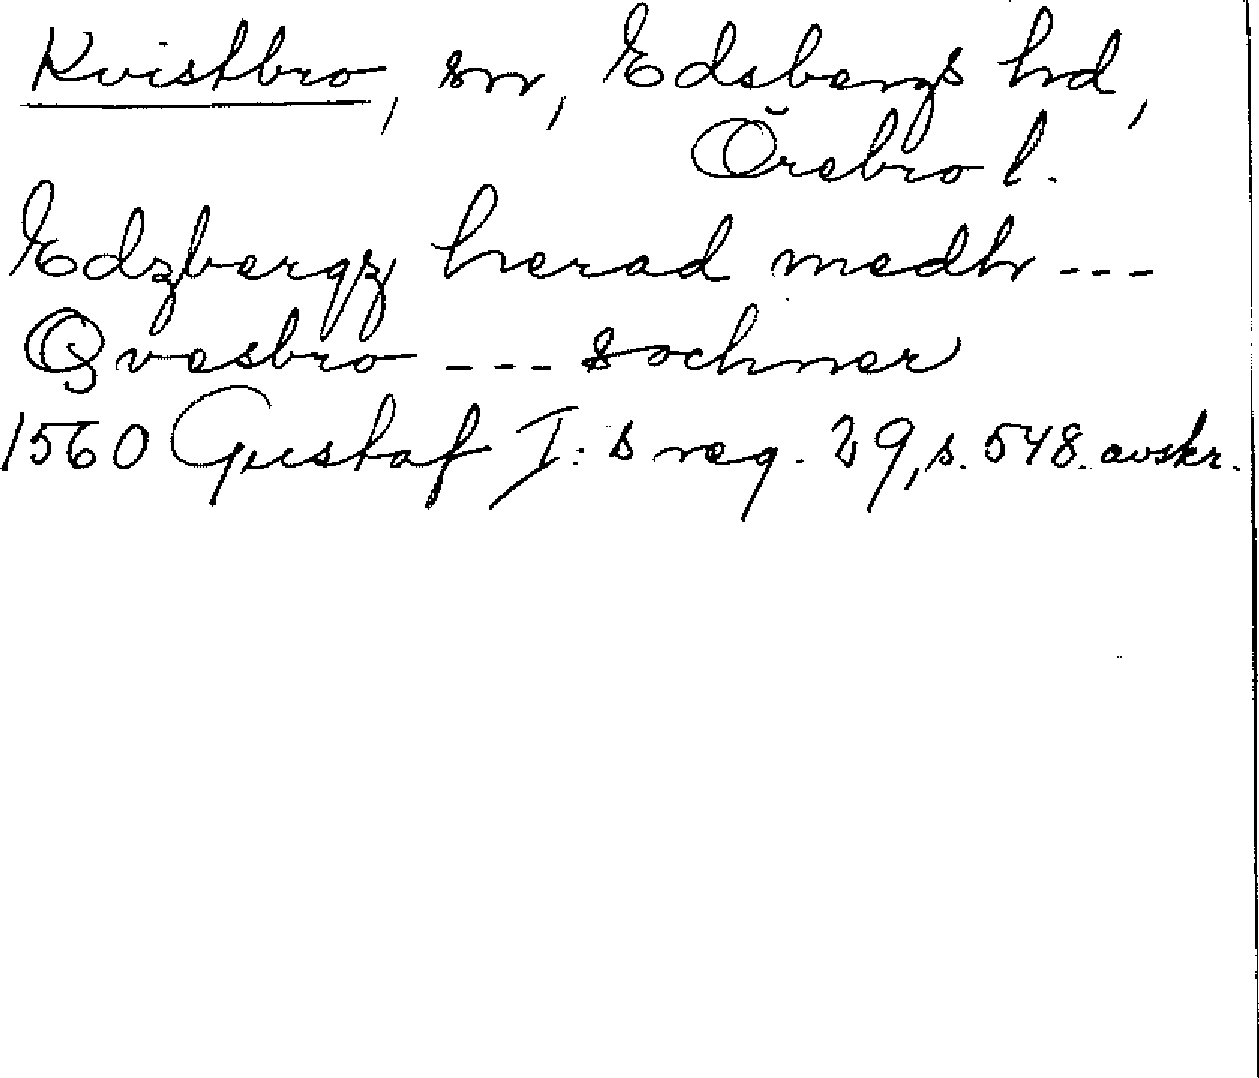 Kvistbro, sn, Edsbergs hd,
Örebro l.
Edzbergz herad medh ---
Qvesbro --- sochner
1560 Gustaf I:s reg. 29, s. 548. avskr.